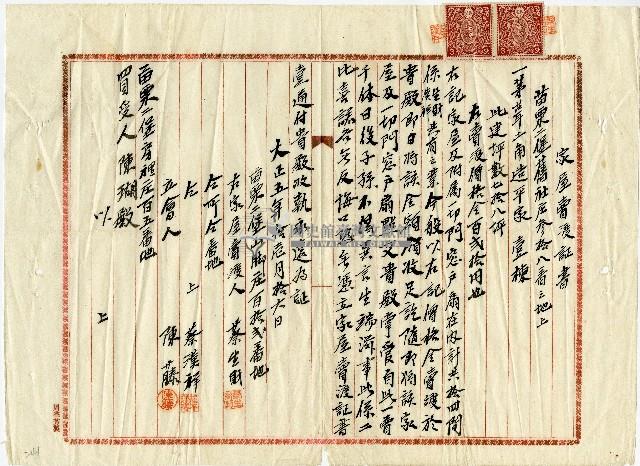 家屋賣渡証書
苗栗二堡舊社庄參拾八番之地上
一茅葺土角造平家 壹棟
此建坪數七拾八坪
右賣渡價格金百貳拾円也
右記家屋及附屬一切門窓戶扇在內計共拾四間
係生財漢祥共有之業今般以右記價格金賣渡於
貴殿即日將該金額領收足訖隨即將該家
屋及一切門窓戶扇照交貴殿掌管自此一賣
千休日後子孫不得異言生端滋事此係二
比喜諾各無反悔口恐無憑立家屋賣渡証書
壹通付貴殿收執 為証
大正五年 月拾六日
苗栗二堡 脚庄百拾貳番地
右家屋賣渡人 蔡生財
仝所仝番地
仝 上 蔡漢祥
立會人 陳藤
苗栗二堡 庄百五番地
買受人 陳瑚殿
以 上